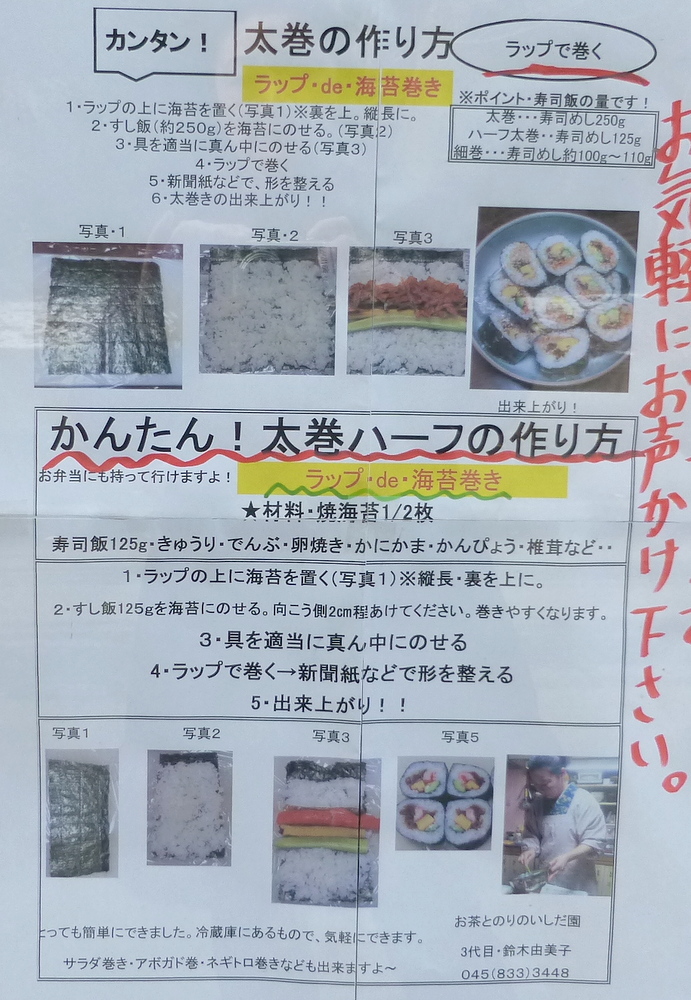 カンタン！
太巻の作り方
ラップで巻く
ラップ・de・海苔巻き
※ポイント・寿司飯の量です！
太巻・・・寿司めし250g
ハーフ太巻・・寿司めし125g
細巻・・・寿司めし約100g～110g
1・ラップの上に海苔を置く(写真1)※裏を上。縦長に。
2・すし飯(約250g)を海苔にのせる。(写真2)
3・具を適当に真ん中にのせる(写真3)
4・ラップで巻く
5・新聞紙などで、形を整える
6・太巻きの出来上がり！！
写真・1
写真・2
写真3
出来上がり！
かんたん！太巻ハーフの作り方
お弁当にも持って行けますよ！
ラップ・de・海苔巻き
★材料・焼海苔1/2枚
寿司飯125g・きゅうり・でんぶ・卵焼き・かにかま・かんぴょう・椎茸など・・
1・ラップの上に海苔を置く(写真1)※縦長・裏を上に。
2・すし飯125gを海苔にのせる。向こう側2cm程あけてください。巻きやすくなります。
3・具を適当に真ん中にのせる
4・ラップで巻く→新聞紙などで形を整える
5・出来上がり！！
写真1
写真2
写真3
写真5
とっても簡単にできました。冷蔵庫にあるもので、気軽にできます。
サラダ巻き・アボガド巻・ネギトロ巻きなども出来ますよ～
お茶とのりのいしだ園
3代目・鈴木由美子
045(833)3448
お気軽にお声かけ下さい。